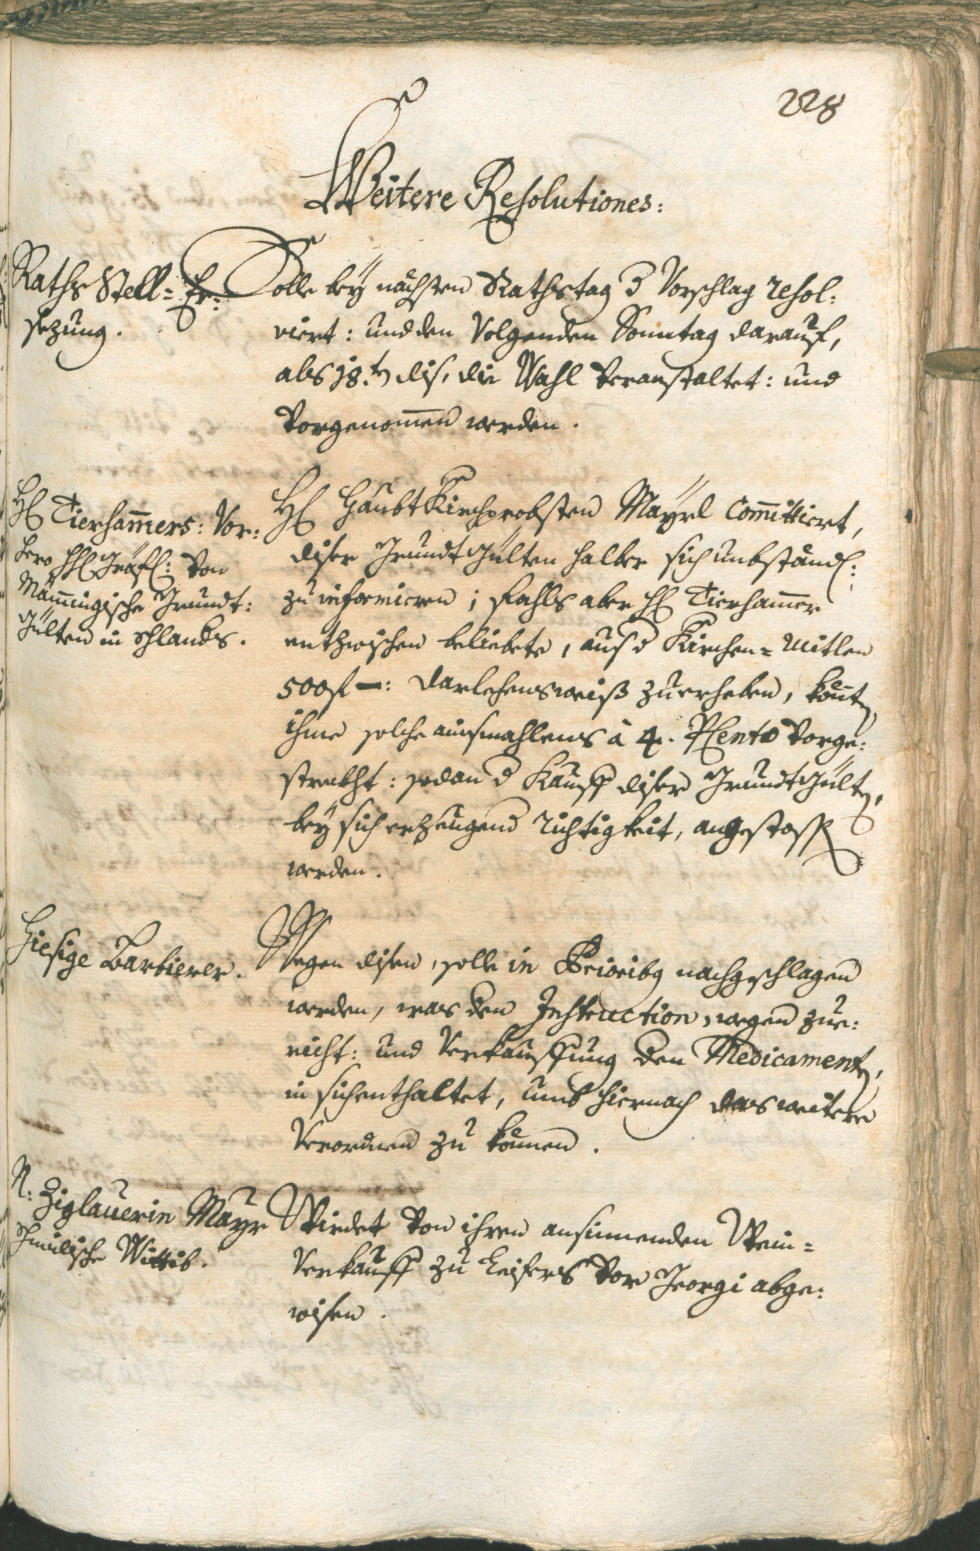 228
Weitere Resolutiones:
Raths Stell= Er=
sezung.
Solle bey nächsten Rathstag d Vorschlag resol:
viert: und den Volgenden Sonntag darauf,
als 18.t dis, die Wahl Veranstaltet: und
Vorgenom̅en werden.
H Tierham̅ers: Vor:
Gräf: Von
Män̅ingische Grundt:
Gülten in Schlands.
H HaubtKirchprobsten Mayrl Com̅ittiert,
diser GrundtGülten halber sich umbständ:
zu informieren; fahls aber H Tierham̅er
entzwischen beliebete, aus d Kirchen=Mitlen
500 f —: darlehensweiß zuerheben, könt
ihme solche ainsmahlens à 4. P Cento Vorge:
strekht: sodan d Kauff diser GrundtGült,
bey sich erzeugend Richtigkeit, angestoss
werden.
Hiesige Barbierer.
Wegen disen, solle in nachgeschlagen
werden, was den Instruction, wegen zue:
richt: und Verkauffung den Medicament,
in sich enthaltet, umb hiernach das weitere
Verordnen zu können.
N: Ziglauerin Mayr
Wittib.
Wirdet von ihren ansinnenden Wein=
Verkauff zu Leifers Vor Georgi abge:
wisen.